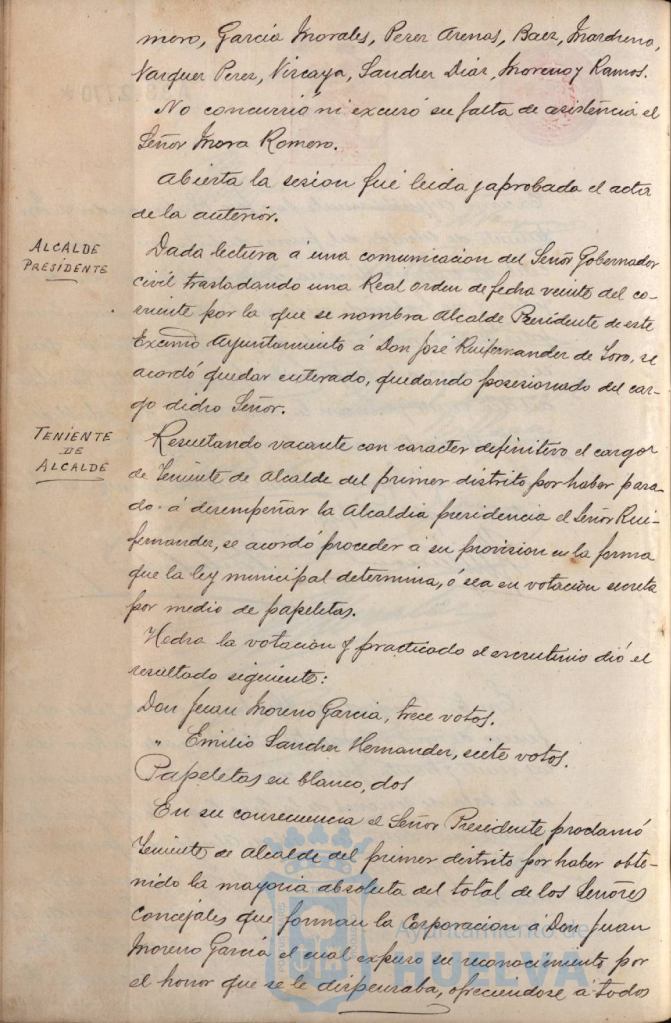 mero, García Morales, Perez Arenas, Baez, Mardreno,
Vazquez Perez, Vizcaya, Sanchez Diaz, Moreno y Ramos.
No concurrió ni excusó su falta de asistencia el
Señor Mora Romero.
Abierta la sesion fué leida y aprobada el acta
de la anterior.
ALCALDE
PRESIDENTE
Dada lectura á una comunicacion del Señor Gobernador
civil trasladando una Real orden de fecha veinte del co-
rriente por la que se nombra Alcalde Presidente de este
Excmo Ayuntamiento á Don José Ruifernandez de Toro, se
acordó quedar enterado, quedando posesionado del car-
go dicho Señor.
TENIENTE
DE
ALCALDE
Resultando vacante con caracter definitivo el cargo
de Teniente de Alcalde del primer distrito por haber pasa-
do á desempeñar la Alcaldia presidencia el Señor Rui-
fernandez, se acordó proceder á su provision en la forma
que la ley municipal determina, ó sea en votación secreta
por medio de papeletas.
Hecha la votacion y practicado el escrutinio dió el
resultado siguiente:
Don Juan Moreno García, trece votos.
" Emilio Sanchez Hernandez, siete votos.
Papeletas en blanco, dos
En su consecuencia el Señor Presidente proclamó
Teniente de Alcalde del primer distrito por haber obte-
nido la mayoria absoluta del total de los Señores
Concejales que forman la Corporacion á Don Juan
Moreno García el cual expuso su reconocimiento por
el honor que se le dispensaba, ofreciendose á todos
Ayuntamiento de
HUELVA